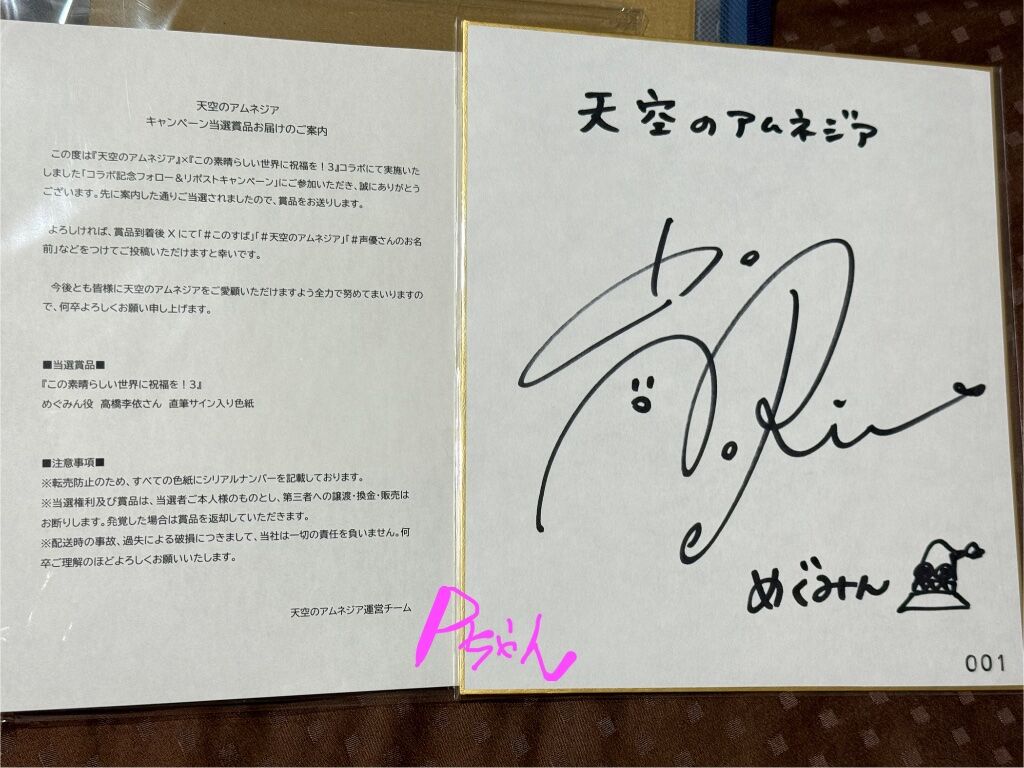 天空のアムネジア
キャンペーン当選賞品お届けのご案内
この度は『天空のアムネジア』×『この素晴らしい世界に祝福を！3』コラボにて実施いた
しました「コラボ記念フォロー＆リポストキャンペーン」にご参加いただき、誠にありがとう
ございます。先に案内した通りご当選されましたので、賞品をお送りします。
よろしければ、賞品到着後 X にて「＃このすば」「＃天空のアムネジア」「＃声優さんのお名
前」などをつけてご投稿いただけますと幸いです。
今後とも皆様に天空のアムネジアをご愛顧いただけますよう全力で努めてまいりますの
で、何卒よろしくお願い申し上げます。
■当選賞品■
『この素晴らしい世界に祝福を！3』
めぐみん役 高橋李依さん 直筆サイン入り色紙
■注意事項■
※転売防止のため、すべての色紙にシリアルナンバーを記載しております。
※当選権利及び賞品は、当選者ご本人様のものとし、第三者への譲渡・換金・販売は
お断りします。発覚した場合は賞品を返却していただきます。
※配送時の事故、過失による破損につきまして、当社は一切の責任を負いません。何
卒ご理解のほどよろしくお願いいたします。
天空のアムネジア運営チーム
Pちゃん
天空のアムネジア
Rie
めぐみん
001